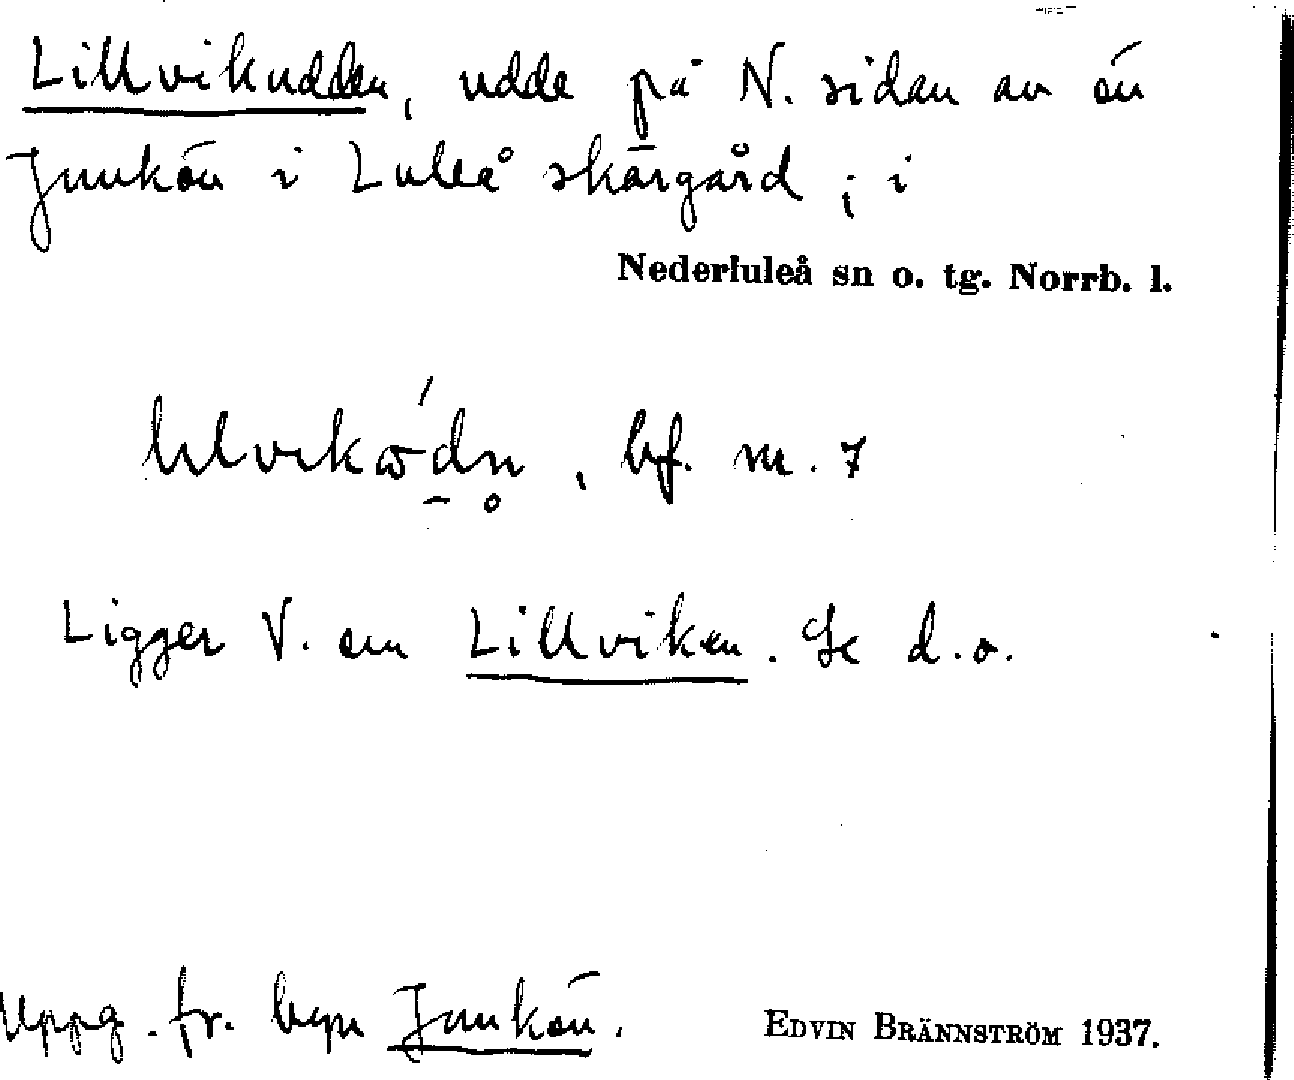 Lillvikudden, udde på N. sidan av ön
Junkön i Luleå skärgård; i
Nederluleå sn o. tg. Norrb. l.
bf. nr. 7
Ligger V. om Lillviken. Se d.o.
Uppg. fr. byn Junkön.
EDVIN BRÄNNSTRÖM 1937.